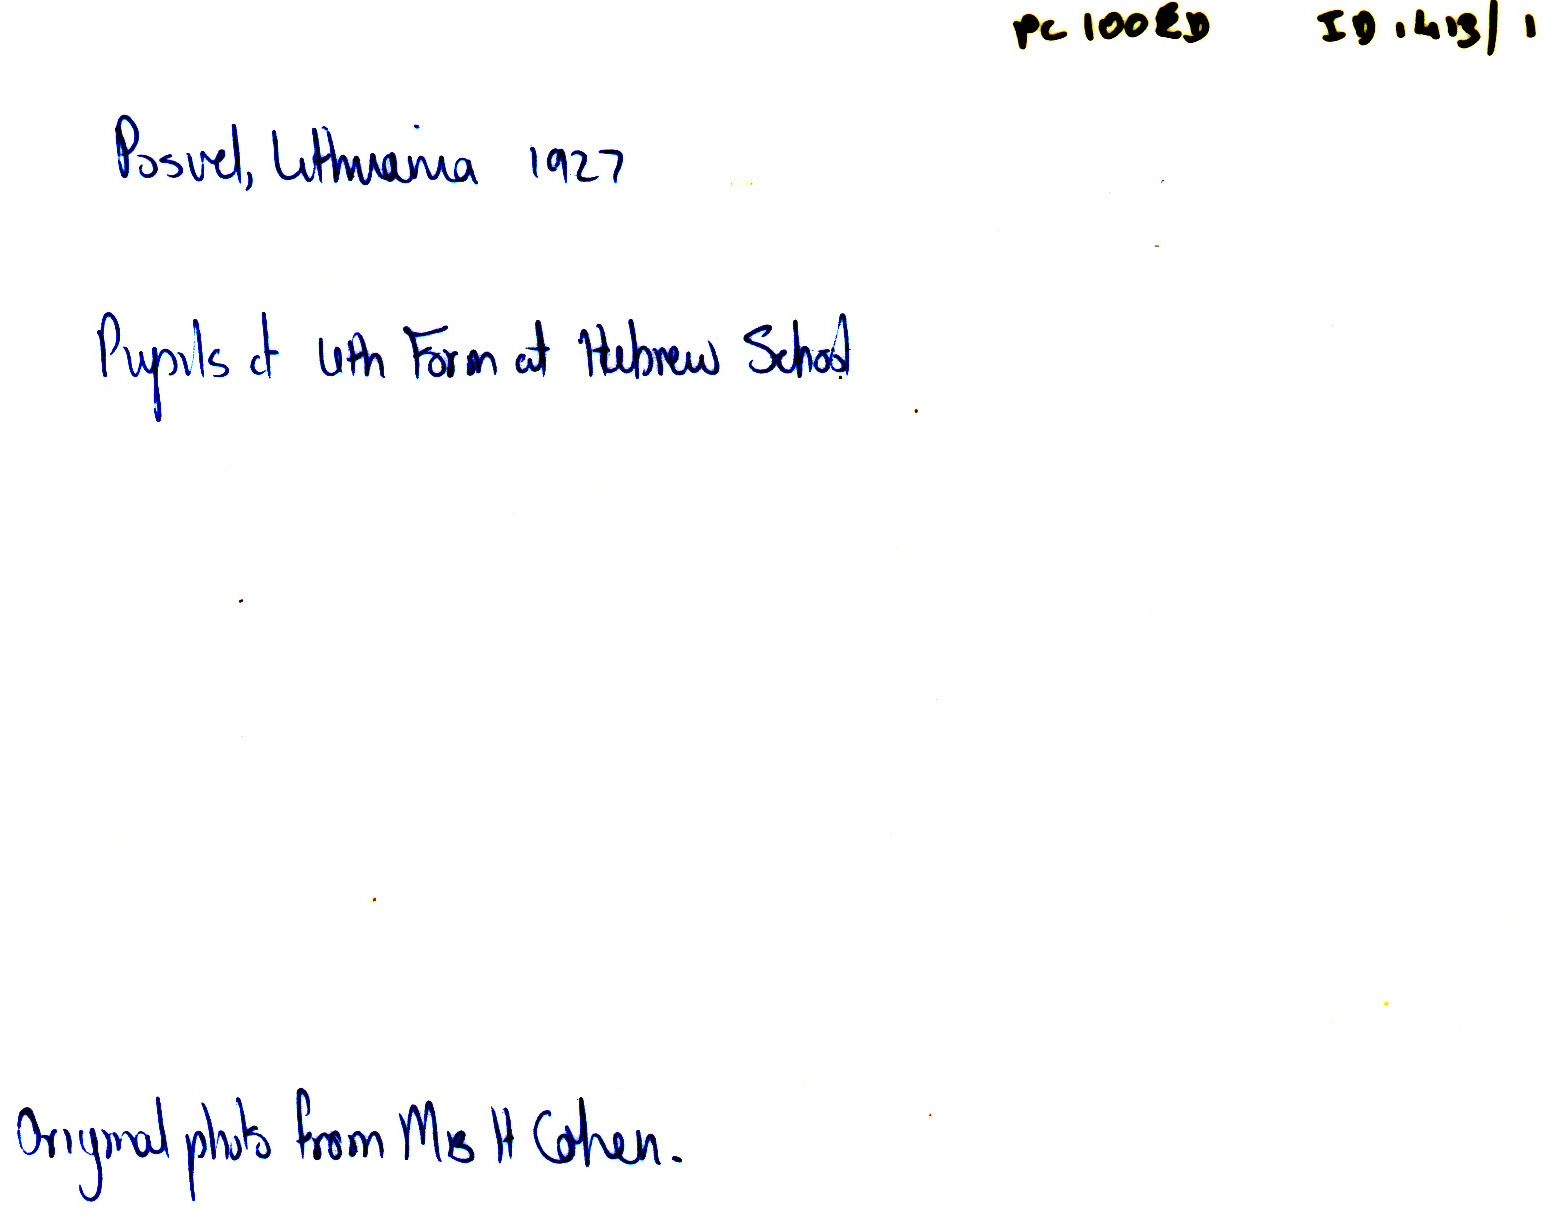 PC 100 ED ID.413/1
Posvel, Lithuania 1927
Pupils of 4th Form at Hebrew School
Original photo from Mrs H Cohen.